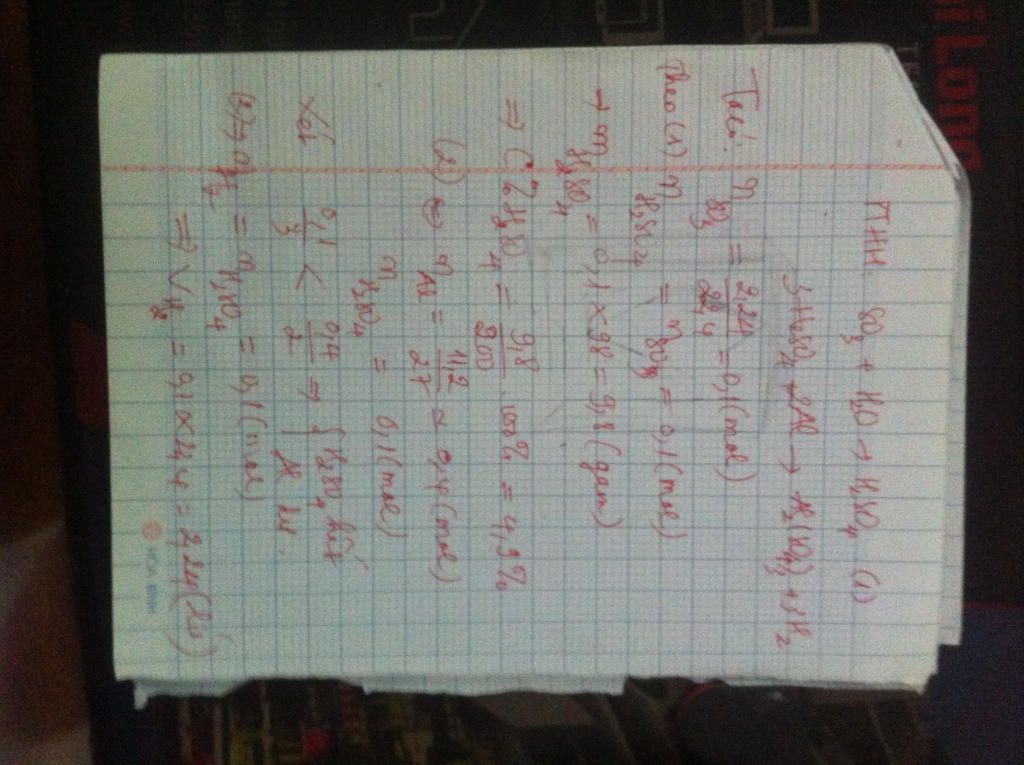 PTHH: SO3 + H2O → H2SO4 (1)
3H2SO4 + 2Al → Al2(SO4)3 + 3H2
Ta có: nSO3 = 2,24/22,4 = 0,1 (mol)
Theo (1) nH2SO4 = nSO3 = 0,1 (mol)
→ mH2SO4 = 0,1 × 98 = 9,8 (gam)
⇒ C% H2SO4 = 9,8/200 . 100% = 4,9%
(2) nAl = 11,2/27 = 0,4 (mol)
nH2SO4 = 0,1 (mol)
Xét 0,1/3 < 0,4/2 ⇒ { H2SO4 hết
Al dư.
(2) → nH2 = nH2SO4 = 0,1 (mol)
⇒ VH2 = 0,1 × 22,4 = 2,24 (lít)
HÒA BÌNH
i Long